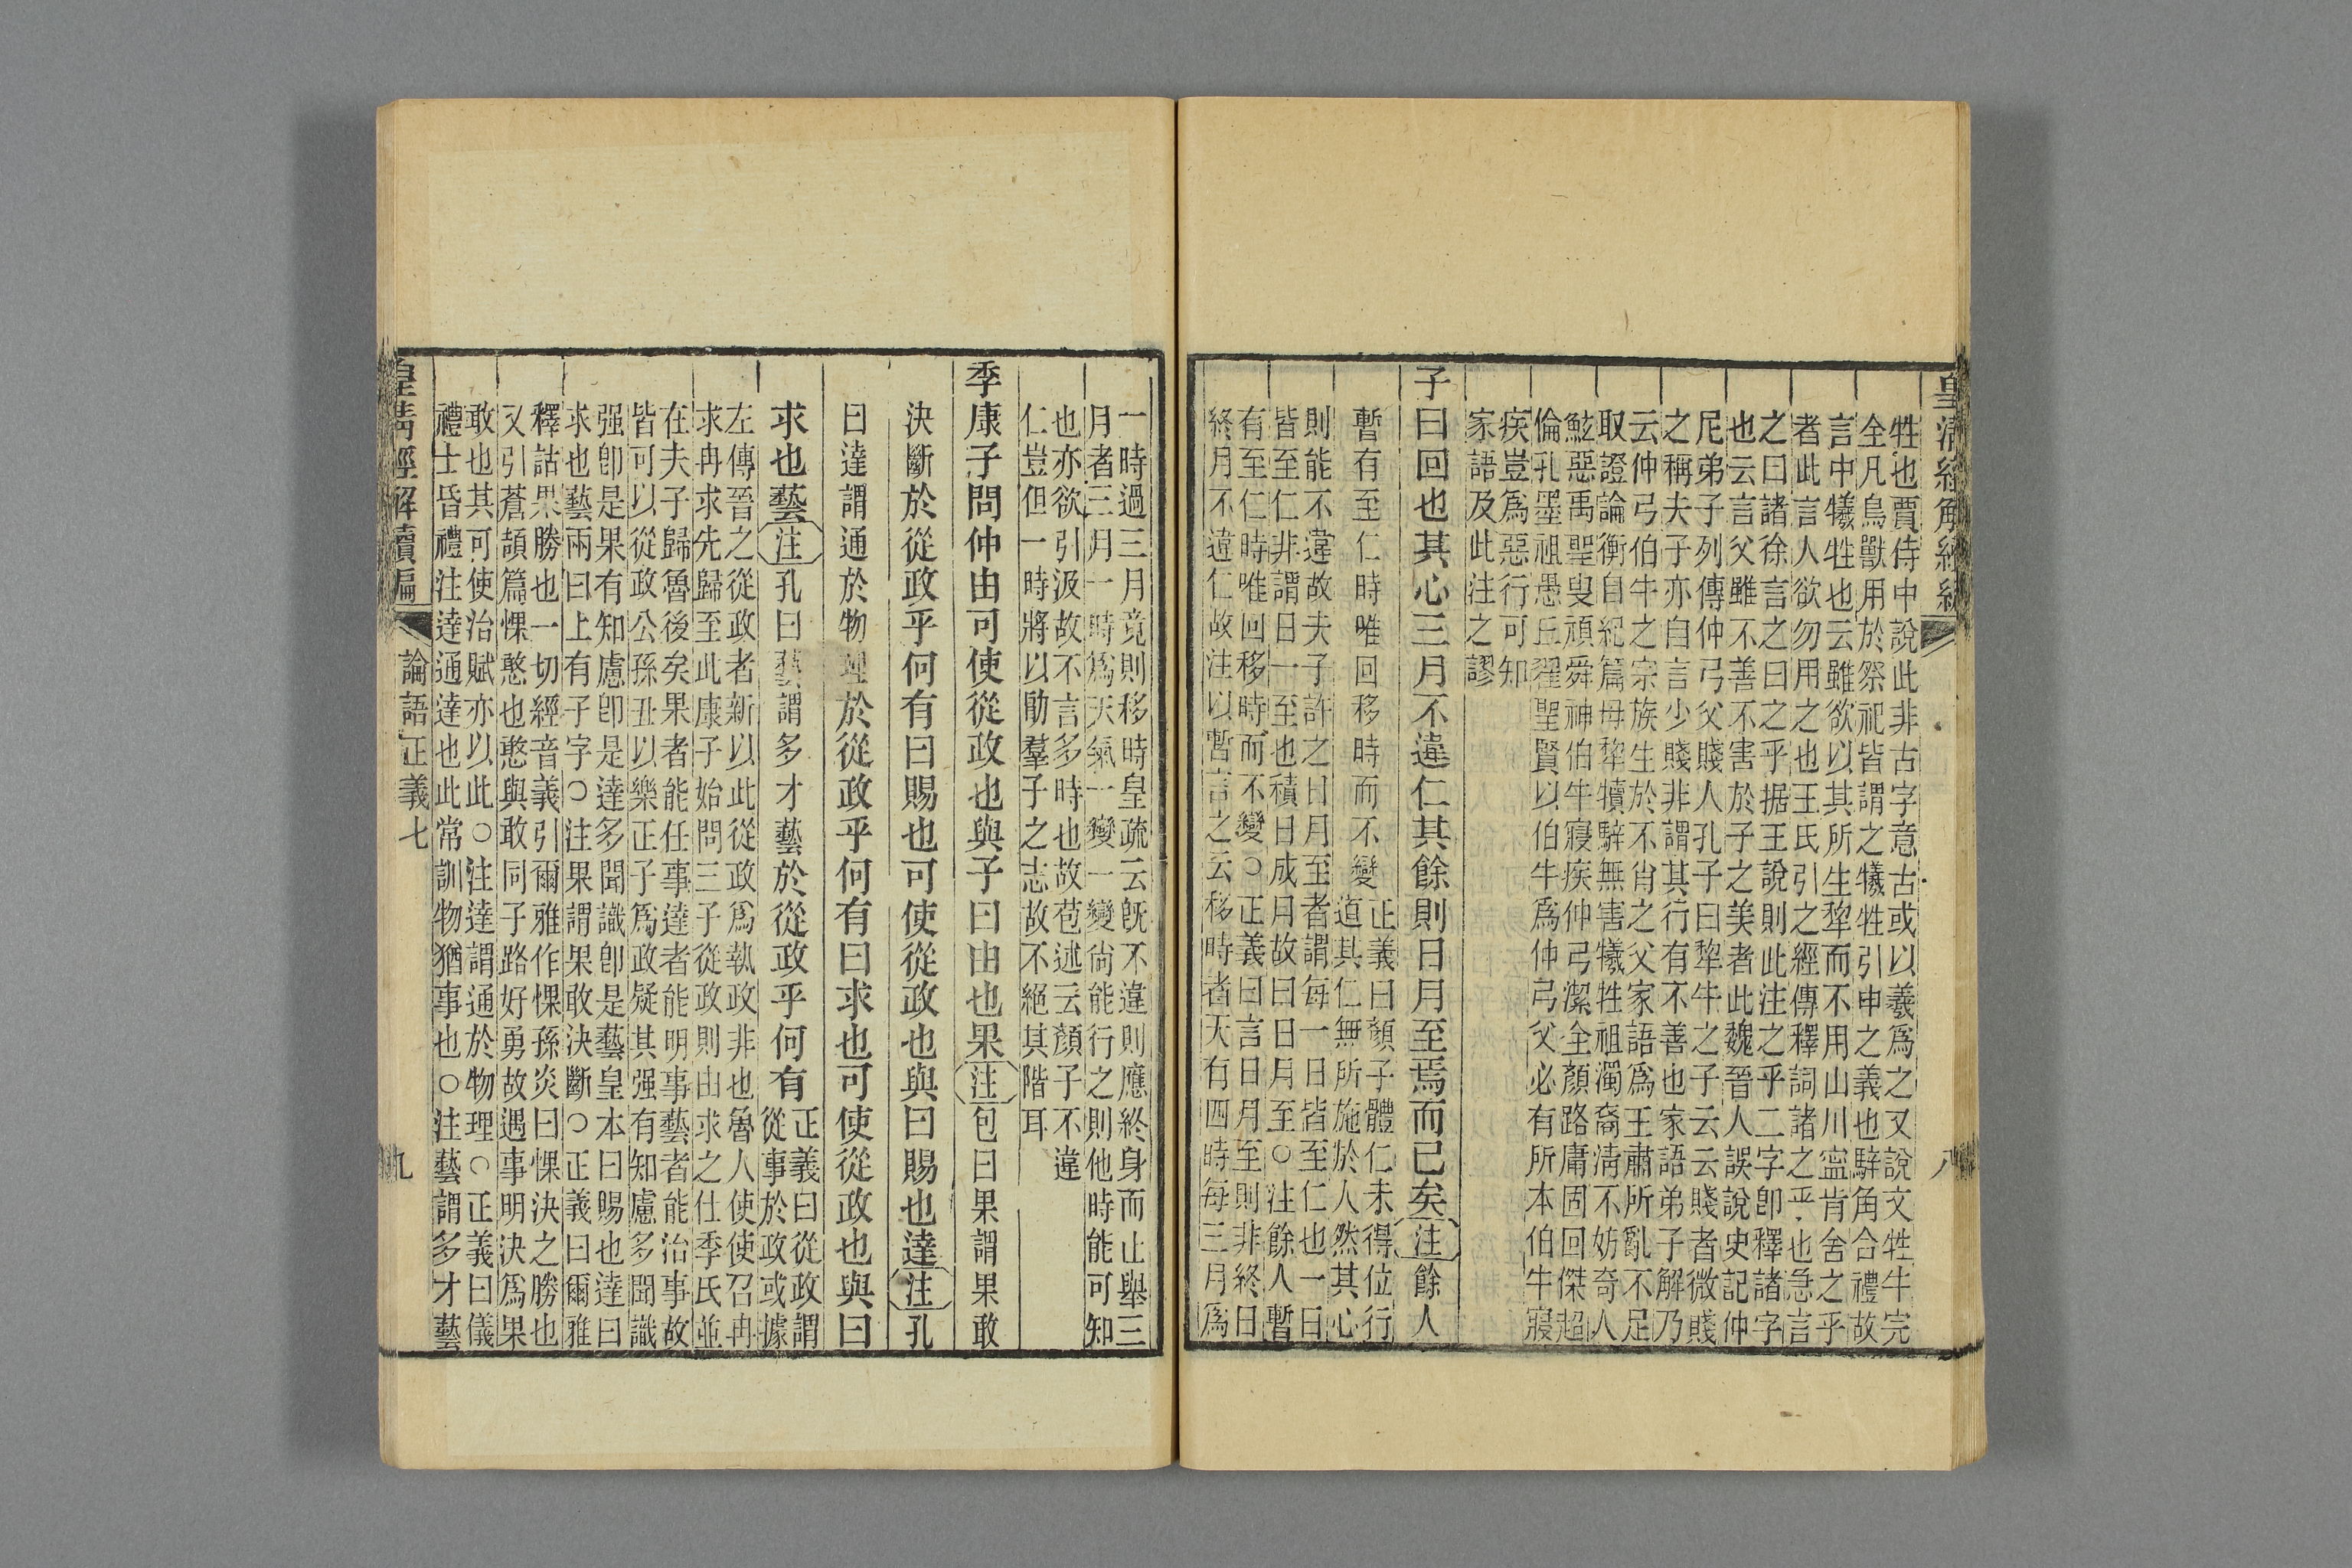 皇清經解續編
八
牲也賈侍中說此非古字意古或以羲爲之又說文牲牛完
全凡鳥獸用於祭祀皆謂之犧牲引申之義也騂角合禮故
言中犧牲也云雖欲以其所生犂而不用山川寍肯舍之乎
者此言人欲勿用之也王氏引之經傳釋詞諸之乎也急言
之曰諸徐言之曰之乎据王說則此注之乎二字卽釋諸字
也云言父雖不善不害於子之美者此魏晉人誤說史記仲
尼弟子列傳仲弓父賤人孔子曰犂牛之子云云賤者微賤
之稱夫子亦自言少賤非謂其行有不善也家語弟子解乃
云仲弓伯牛之宗族生於不肖之父家語爲王肅所亂不足
取證論衡自紀篇母犂犢騂無害犧牲祖濁裔淸不妨奇人
鮌惡禹聖叟頑舜神伯牛寢疾仲弓潔全顏路庸固回傑超
倫孔墨祖愚丘翟聖賢以伯牛爲仲弓父必有所本伯牛寢
疾豈爲惡行可知
家語及此注之謬
子曰回也其心三月不違仁其餘則日月至焉而已矣注餘人
暫有至仁時唯回移時而不變
正義曰顏子體仁未得位行
道其仁無所施於人然其心
則能不違故夫子許之日月至者謂每一日皆至仁也一日
皆至仁非謂日一至也積日成月故曰日月至○注餘人暫
有至仁時唯回移時而不變○正義曰言日月至則非終日
終月不違仁故注以暫言之云移時者天有四時每三月爲
一時過三月竟則移時皇疏云旣不違則應終身而止舉三
月者三月一時爲天氣一變一變尙能行之則他時能可知
也亦欲引汲故不言多時也故苞述云顏子不違
仁豈但一時將以勖羣子之志故不絕其階耳
季康子問仲由可使從政也與子曰由也果注包曰果謂果敢
決斷於從政乎何有曰賜也可使從政也與曰賜也達注孔
曰達謂通於物理於從政乎何有曰求也可使從政也與曰
求也藝注孔曰藝謂多才藝於從政乎何有
正義曰從政謂
從事於政或據
左傳晉之從政者新以此從政爲執政非也魯人使使召冉
求冉求先歸至此康子始問三子從政則由求之仕季氏並
在夫子歸魯後矣果者能任事達者能明事藝者能治事故
皆可以從政公孫丑以樂正子爲政疑其强有知慮多聞識
强卽是果有知慮卽是達多聞識卽是藝皇本曰賜也達曰
求也藝兩曰上有子字○注果謂果敢決斷○正義曰爾雅
釋詁果勝也一切經音義引爾雅作惈孫炎曰惈決之勝也
又引蒼頡篇惈憨也憨與敢同子路好勇故遇事明決爲果
敢也其可使治賦亦以此○注達謂通於物理○正義曰儀
禮士昏禮注達通達也此常訓物猶事也○注藝謂多才藝
皇淸經解續編
論語正義七
九